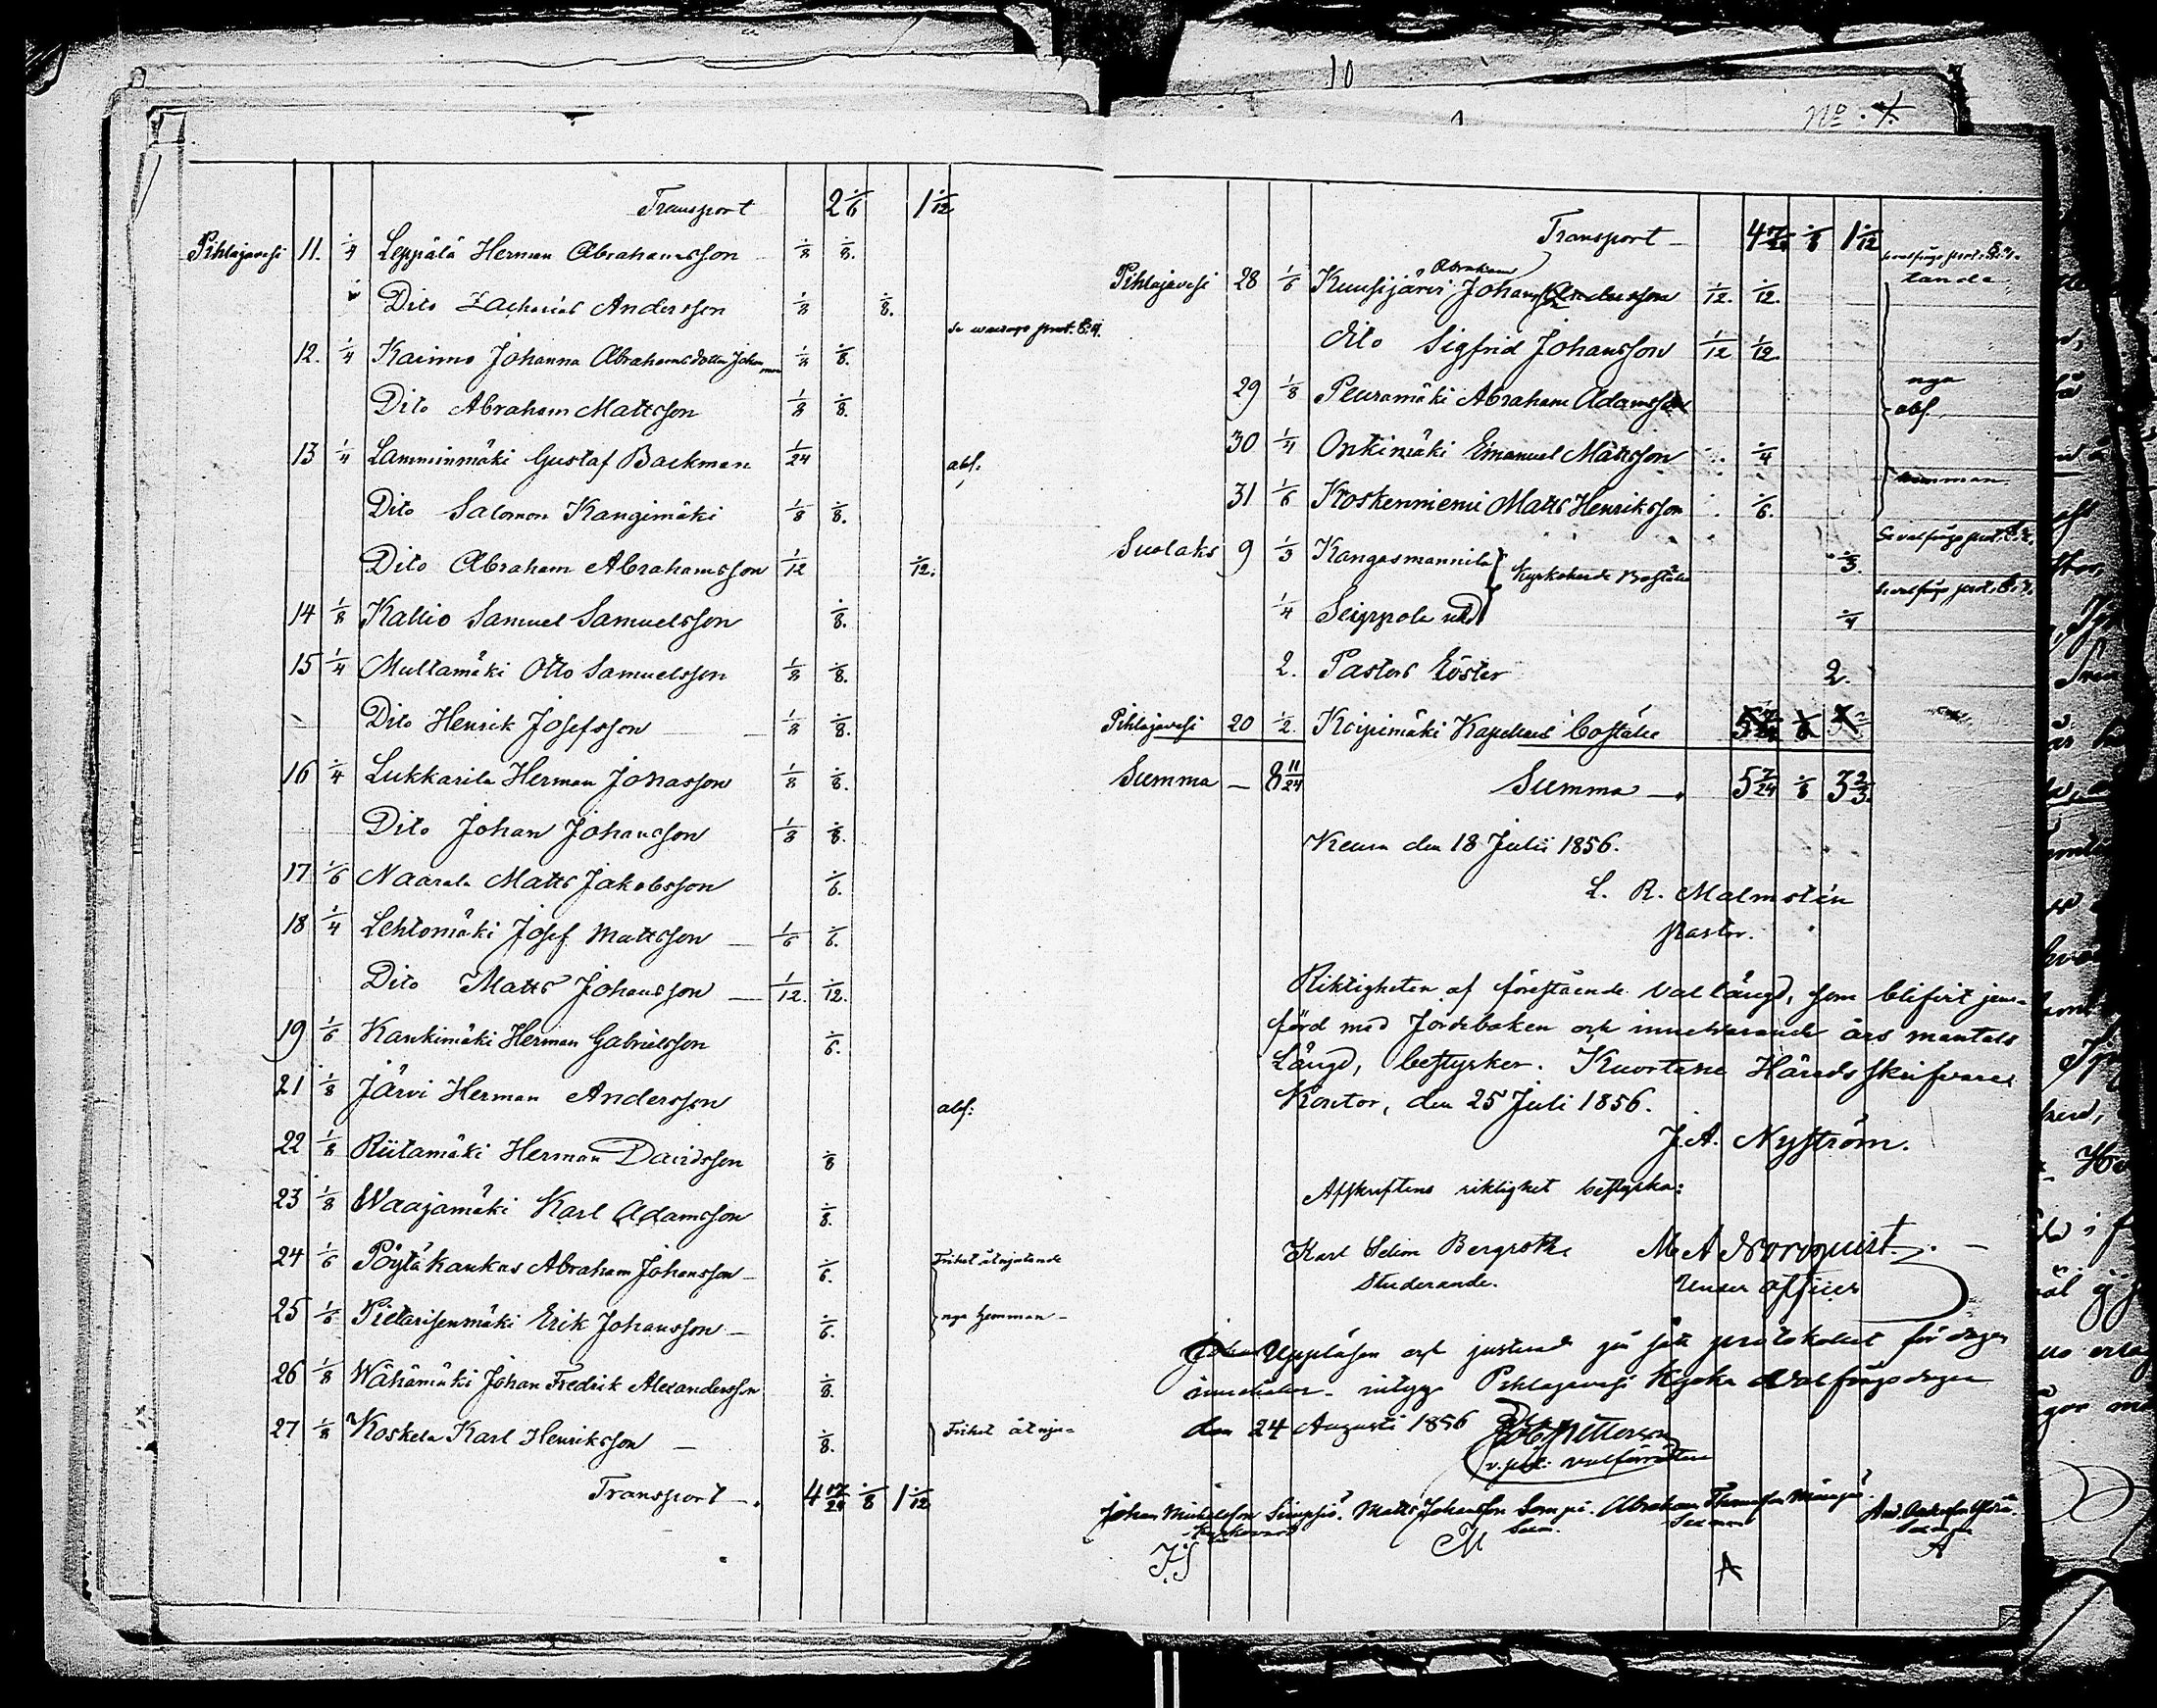 10
No. 7.
Transport 2 1/6 1 1/12
Pihlajavesi 11. 1/4 Leppälä Herman Abrahamsson 1/8 1/8.
Dito Zacharias Andersson 1/8 1/8.
12. 1/4 Kaimo Johanna Abrahamsdotter 1/8 1/8.
Dito Abraham Mattsson 1/8 1/8.
13 1/4 Lamminmäki Gustaf Backman 1/24 abs:
Dito Salomon Kangimäki 1/8 1/8.
Dito Abraham Abrahamsson 1/12 1/12.
14 1/8 Kallio Samuel Samuelsson 1/8.
15 1/4 Multamäki Otto Samuelsson 1/8 1/8.
Dito Henrik Josefsson 1/8 1/8.
16 1/4 Lukkarila Herman Jonasson 1/8 1/8.
Dito Johan Johansson 1/8 1/8.
17 1/6 Naarala Matts Jakobsson 1/6.
18 1/4 Lehtomäki Josef Mattsson 1/6 1/6.
Dito Matts Johansson 1/12. 1/12.
19 1/6 Kaukimäki Herman Gabrielsson 1/6.
21 1/8 Järvi Herman Andersson abs:
22 1/8 Riitamäki Herman Davidsson 1/8
23 1/8 Waajamäki Karl Adamsson 1/8.
24 1/6 Pöytäkankas Abraham Johansson 1/6. Frihet åtnjutande
25 1/6 Pietarisenmäki Erik Johansson 1/6. nya hemman
26 1/8 Wähämäki Johan Fredrik Alexandersson 1/8.
27 1/8 Koskela Karl Henriksson 1/8. Frihet åtnju-
Transport 4 17/24 1/8 1 1/12
Transport 4 17/24 1/8 1 1/12
tande
Pihlajavesi 28 1/6 Kuusijärvi Johan Abraham Andersson 1/12. 1/12.
dito Sigfrid Johansson 1/12 1/12.
29 1/8 Peuramäki Abraham Adamsson nya abs.
30 1/4 Onkimäki Emanuel Mattsson 1/4
31 1/6 Koskenniemi Matts Henriksson 1/6. hemman
Suolaks 9 1/3 Kangasmannila Kyrkoherde Boställe 1/3.
1/4 Seippola 1/4
2. Pastors Röster 2.
Pihlajavesi 20 1/2. Koipimäki Kapellans boställe
Summa 8 11/24 Summa 5 7/24 1/8 3 2/3.
Keuru den 18 Julii 1856.
L. R. Malmstén
pastor.
Riktigheten af förestående vallängd, som blifvit jem-
förd med Jordeboken och innevarande års mantals
Längd, bestyrker. Kuortane Härads skrifvare
Kontor, den 25 Juli 1856.
J. A. Nyström.
Afskriftens riktighet bestyrka:
Karl Selim Bergroth M A Nordquist.
Studerande. Under officer
Uppläsen och justerad på sätt protokollet för dagen
innehåller intyga Pihlajavesi Kyrka Valfrågodagen
den 24 Augusti 1856
v. past: valförrättare
Johan Michelsson Simpsiö. Matts Johansson Sompi. Abraham Thomasson
Kyrkovärd Sexm. Sexman
J.S M A A